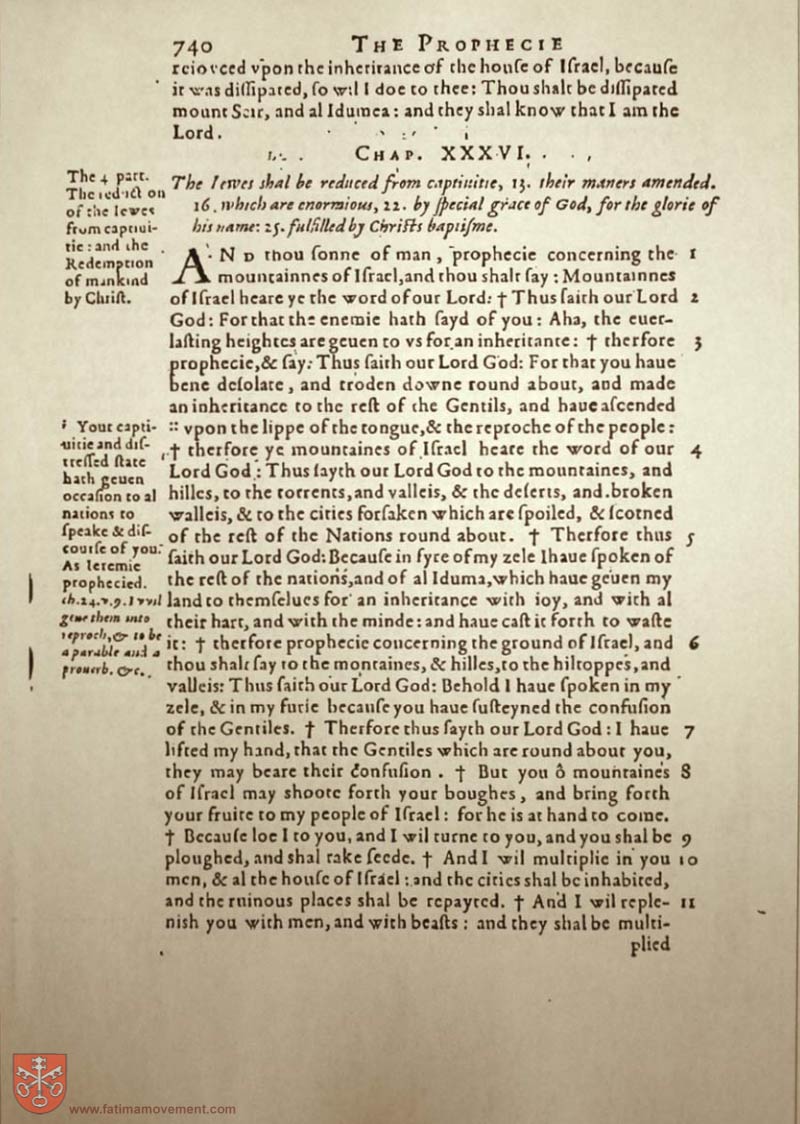 740 THE PROPHECIE
reioyced vpon the inheritance of the houſe of Iſrael, becauſe
it was diſſipated, ſo wil I doe to thee: Thou shalt be diſſipated
mount Seir, and al Idumea: and they shal know that I am the
Lord.
CHAP. XXXVI.
The Iewes shal be reduced from captiuitie, 13. their maners amended.
16. which are enormious, 22. by ſpecial grace of God, for the glorie of
his name: 25. fulfilled by Chriſts baptiſme.
The 4 part.
The reductiō on
of the Iewes
from captiui-
tie: and the
Redemption
of mankind
by Chriſt.
AND thou ſonne of man, prophecie concerning the 1
mountainnes of Iſrael, and thou shalt ſay: Mountainnes
of Iſrael heare ye the word of our Lord: † Thus ſaith our Lord 2
God: For that the enemie hath ſayd of you: Aha, the euer-
laſting heightes are geuen to vs for an inheritance: † therfore 3
prophecie, & ſay: Thus ſaith our Lord God: For that you haue
bene deſolate, and troden downe round about, and made
an inheritance to the reſt of the Gentils, and haue aſcended
:: vpon the lippe of the tongue, & the reproche of the people:
† therfore ye mountaines of Iſrael heare the word of our 4
Lord God: Thus ſayth our Lord God to the mountaines, and
hilles, to the torrents, and valleis, & the deſerts, and broken
walleis, & to the cities forſaken which are ſpoiled, & ſcorned
of the reſt of the Nations round about. † Therfore thus 5
ſaith our Lord God: Becauſe in fyre of my zele I haue ſpoken of
the reſt of the nations, and of al Iduma, which haue geuen my
land to themſelues for an inheritance with ioy, and with al
their hart, and with the minde: and haue caſt it forth to waſte
it: † therfore prophecie concerning the ground of Iſrael, and 6
thou shalt ſay to the montaines, & hilles, to the hiltoppes, and
valleis: Thus ſaith our Lord God: Behold I haue ſpoken in my
zele, & in my furie becauſe you haue ſuſteyned the confuſion
of the Gentiles. † Therfore thus ſayth our Lord God: I haue 7
lifted my hand, that the Gentiles which are round about you,
they may beare their confuſion. † But you ô mountaines 8
of Iſrael may shoote forth your boughes, and bring forth
your fruite to my people of Iſrael: for he is at hand to come.
† Becauſe loe I to you, and I wil turne to you, and you shal be 9
ploughed, and shal take ſeede. † And I wil multiplie in you 10
men, & al the houſe of Iſrael: and the cities shal be inhabited,
and the ruinous places shal be repayred. † And I wil reple- 11
nish you with men, and with beaſts: and they shal be multi-
plied
Your capti-
uitie and diſ-
treſſed ſtate
hath geuen
occaſion to al
nations to
ſpeake & diſ-
courſe of you.
As Ieremie
prophecied.
ch. 24. v. 9. I wil
geue them into
reproch, & to be
a parable and a
prouerb. &c.
www.fatimamovement.com